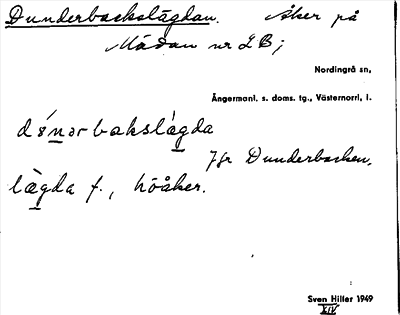 Dunderbackslägdan. Åker på
Mädan nr 2B;
Nordingrå sn,
Ångermanl. s. doms. tg., Västernorrl. l.
dónərbakslàgda
Jfr Dunderbacken.
lägda f., höåker.
Sven Hiller 1949
XIV